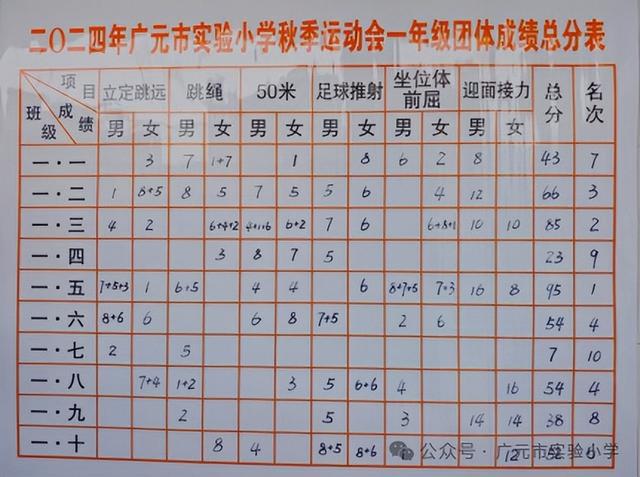 二〇二四年广元市实验小学秋季运动会一年级团体成绩总分表
项目 成绩 班级 立定跳远 跳绳 50米 足球推射 坐位体前屈 迎面接力 总分 名次
男 女 男 女 男 女 男 女 男 女 男 女
一·一 3 7 1+7 1 8 6 2 8 43 7
一·二 1 8+5 8 5 7 5 5 6 4 12 66 3
一·三 4 2 6+4+2 6+2 7 6 6+8+1 10 10 85 2
一·四 3 8 7 5 23 9
一·五 7+5+3 1 6+5 4 4 6 8+7+5 7+3 16 8 95 1
一·六 8+6 6 6 8 7+5 2 6 54 4
一·七 2 5 7 10
一·八 7+4 1+2 3 5 6+6 4 16 54 4
一·九 2 5 3 14 14 38 8
一·十 8 4 8+5 8+6 12 52 6
公众号·广元市实验小学